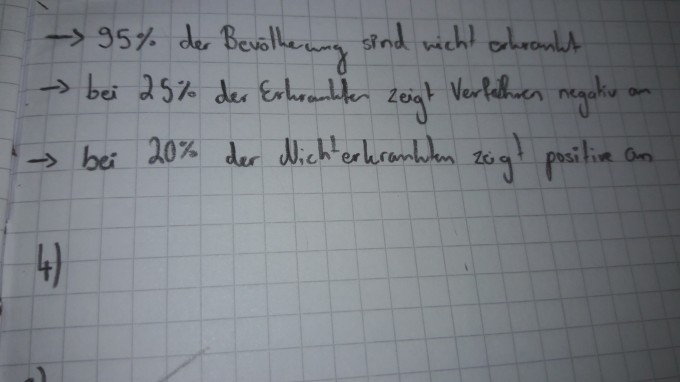 → 95% der Bevölkerung sind nicht erkrankt
→ bei 25% der Erkrankten zeigt Verfahren negativ an
→ bei 20% der Nichterkrankten zeigt positive an
4)